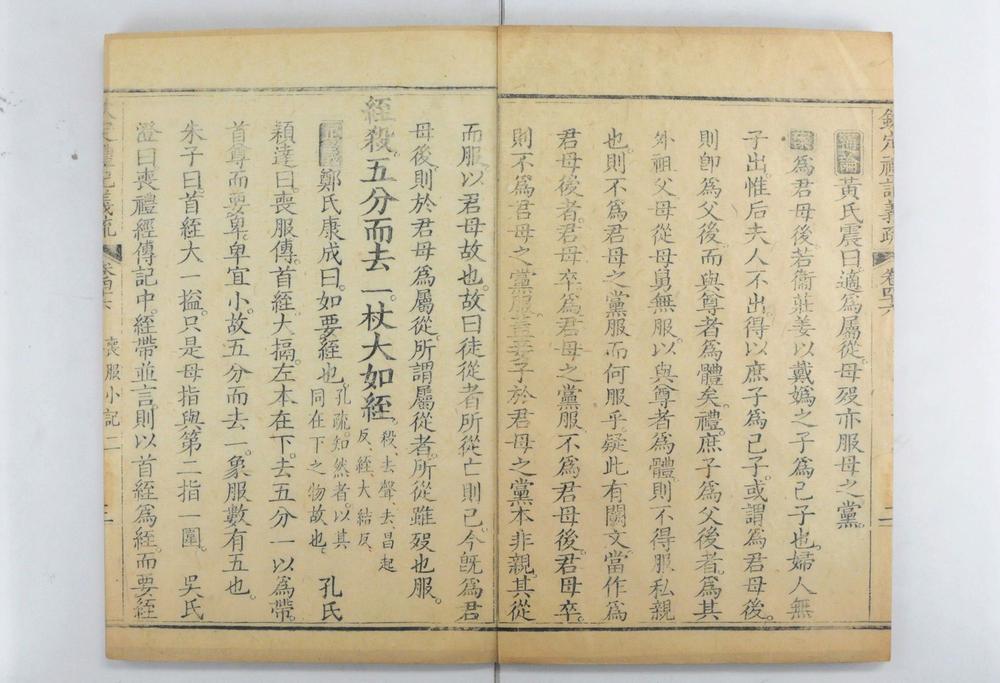 欽定禮記義疏 卷四十六
通論 黃氏震曰適為屬從母歿亦服母之黨
案 為君母後若衞莊姜以戴嬀之子為己子也婦人無
子出惟后夫人不出得以庶子為己子或謂為君母後
則卽為父後而與尊者為體矣禮庶子為父後者為其
外祖父母從母舅無服以與尊者為體則不得服私親
也則不為君母之黨服而何服乎疑此有闕文當作為
君母後者君母卒為君母之黨服不為君母後君母卒
則不為君母之黨服葢妾子於君母之黨本非親其從
而服以君母故也故曰徒從者所從亡則已今旣為君
母後則於君母為屬從所謂屬從者所從雖歿也服
絰殺五分而去一杖大如絰殺去聲去昌起
反絰大結反
正義 鄭氏康成曰如要絰也孔疏知然者以其
同在下之物故也 孔氏
穎達曰喪服傳首絰大搹左本在下去五分一以為帶
首尊而要卑卑宜小故五分而去一象服數有五也
朱子曰首絰大一搤只是母指與第二指一圍 吳氏
澄曰喪禮經傳記中絰帶並言則以首絰為絰而要絰
喪服小記二